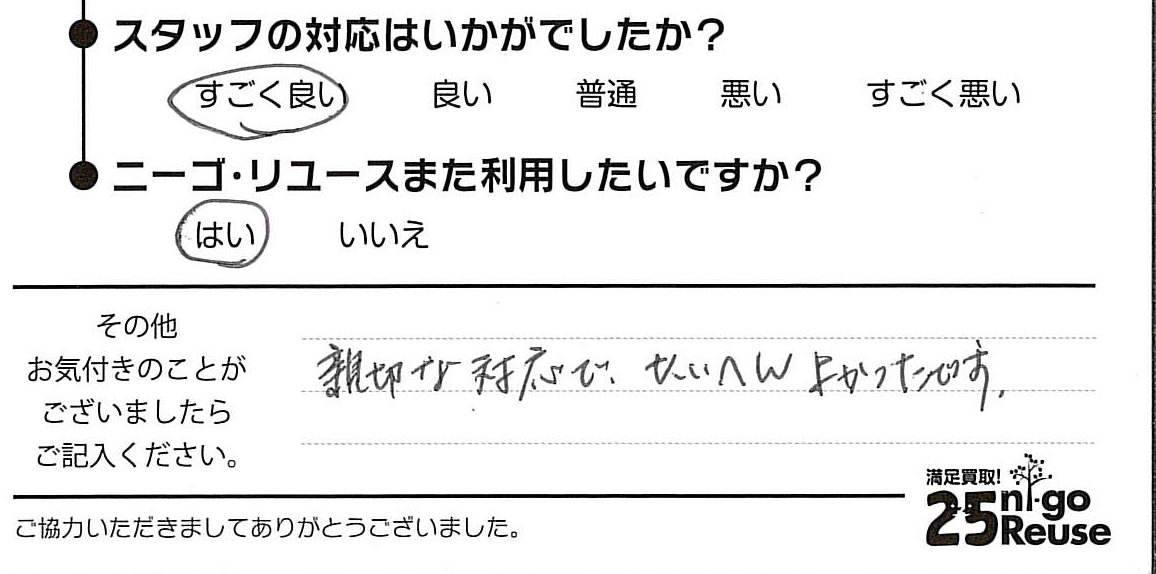 スタッフの対応はいかがでしたか?
すごく良い 良い 普通 悪い すごく悪い
ニーゴ・リユースまた利用したいですか?
はい いいえ
その他
お気付きのことが
ございましたら
ご記入ください。
親切な対応で、たいへんよかったです。
満足買取!
25 ni-go
Reuse
ご協力いただきましてありがとうございました。